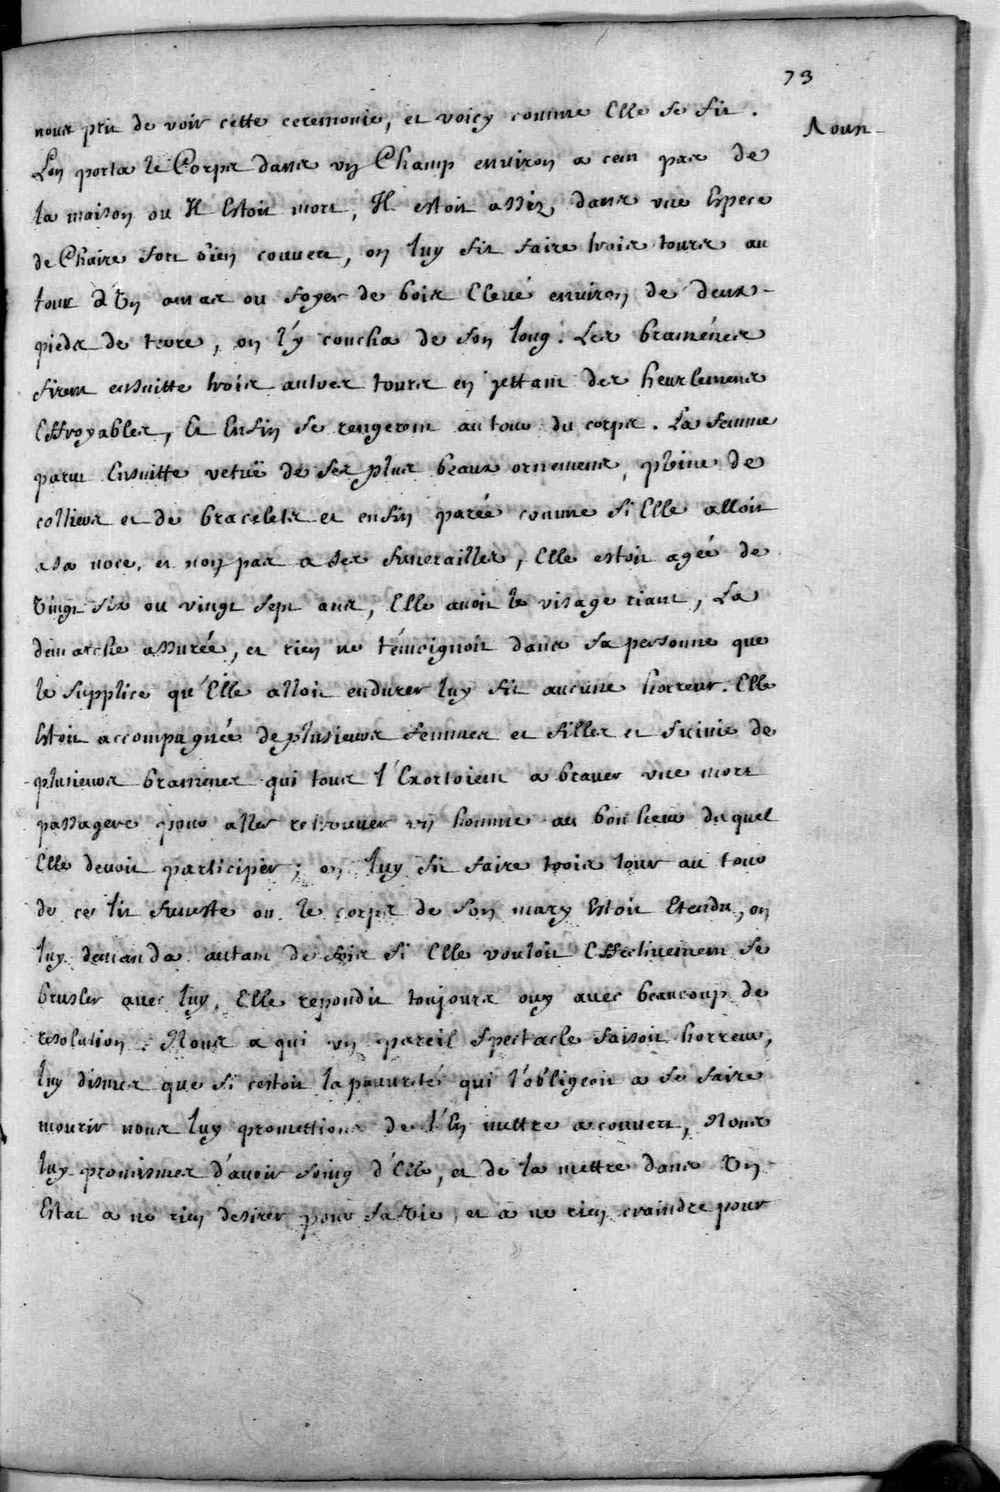 73
nous prit de voir cette ceremonie, et voicy comme Elle se fit.
Aoust
L'on porta le Corps dans un Champ environ a cent pas de
la maison ou Il Estoit mort, Il estoit assiz dans une Espece
de Chaire fort bien couvert, on luy fit faire trois tours au
tour d'Un amas ou foyer de bois Elevé environ de deux
pieds de terre, on l'y coucha de son long. Les braménes
firent ensuitte trois autres tours en jettant des heurlemens
Effroyables, Et Enfin se rengerent au tour du corps. La femme
parut Ensuitte vetuë de ses plus beaux ornemens, pleine de
colliers et de bracelets et enfin parée comme si Elle alloit
a sa noce, et non pas a ses funerailles, Elle estoit agée de
Vingt six ou vingt sept ans, Elle avoit le visage riant, La
demarche assurée, et rien ne témoignoit dans sa personne que
le supplice qu'Elle alloit endurer luy fit aucune horreur. Elle
Estoit accompagnée de plusieurs femmes et filles et suivie de
plusieurs bramenes qui tous l'Exortoient a braver une mort
passagere pour aller retrouver un homme au bonheur duquel
Elle devoit participer; on luy fit faire trois tour au tour
de ce lit funeste ou le corps de son mary Estoit Etendu, on
luy demanda autant de fois si Elle vouloit Effectivement se
brusler avec luy, Elle repondit toujours ouy avec beaucoup de
resolution. Nous a qui un pareil spectacle faisoit horreur,
luy dismes que si cestoit la pauvreté qui l'obligeoit a se faire
mourir nous luy promettions de l'En mettre a couvert, Nous
luy promismes d'avoir soing d'Elle, et de la mettre dans Un
Estat a ne rien desirer pour sa Vie, et a ne rien craindre pour